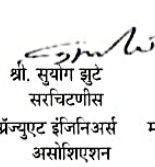 श्री. सुयोग झुटे
सरचिटणीस
ग्रॅज्युएट इंजिनिअर्स
असोशिएशन